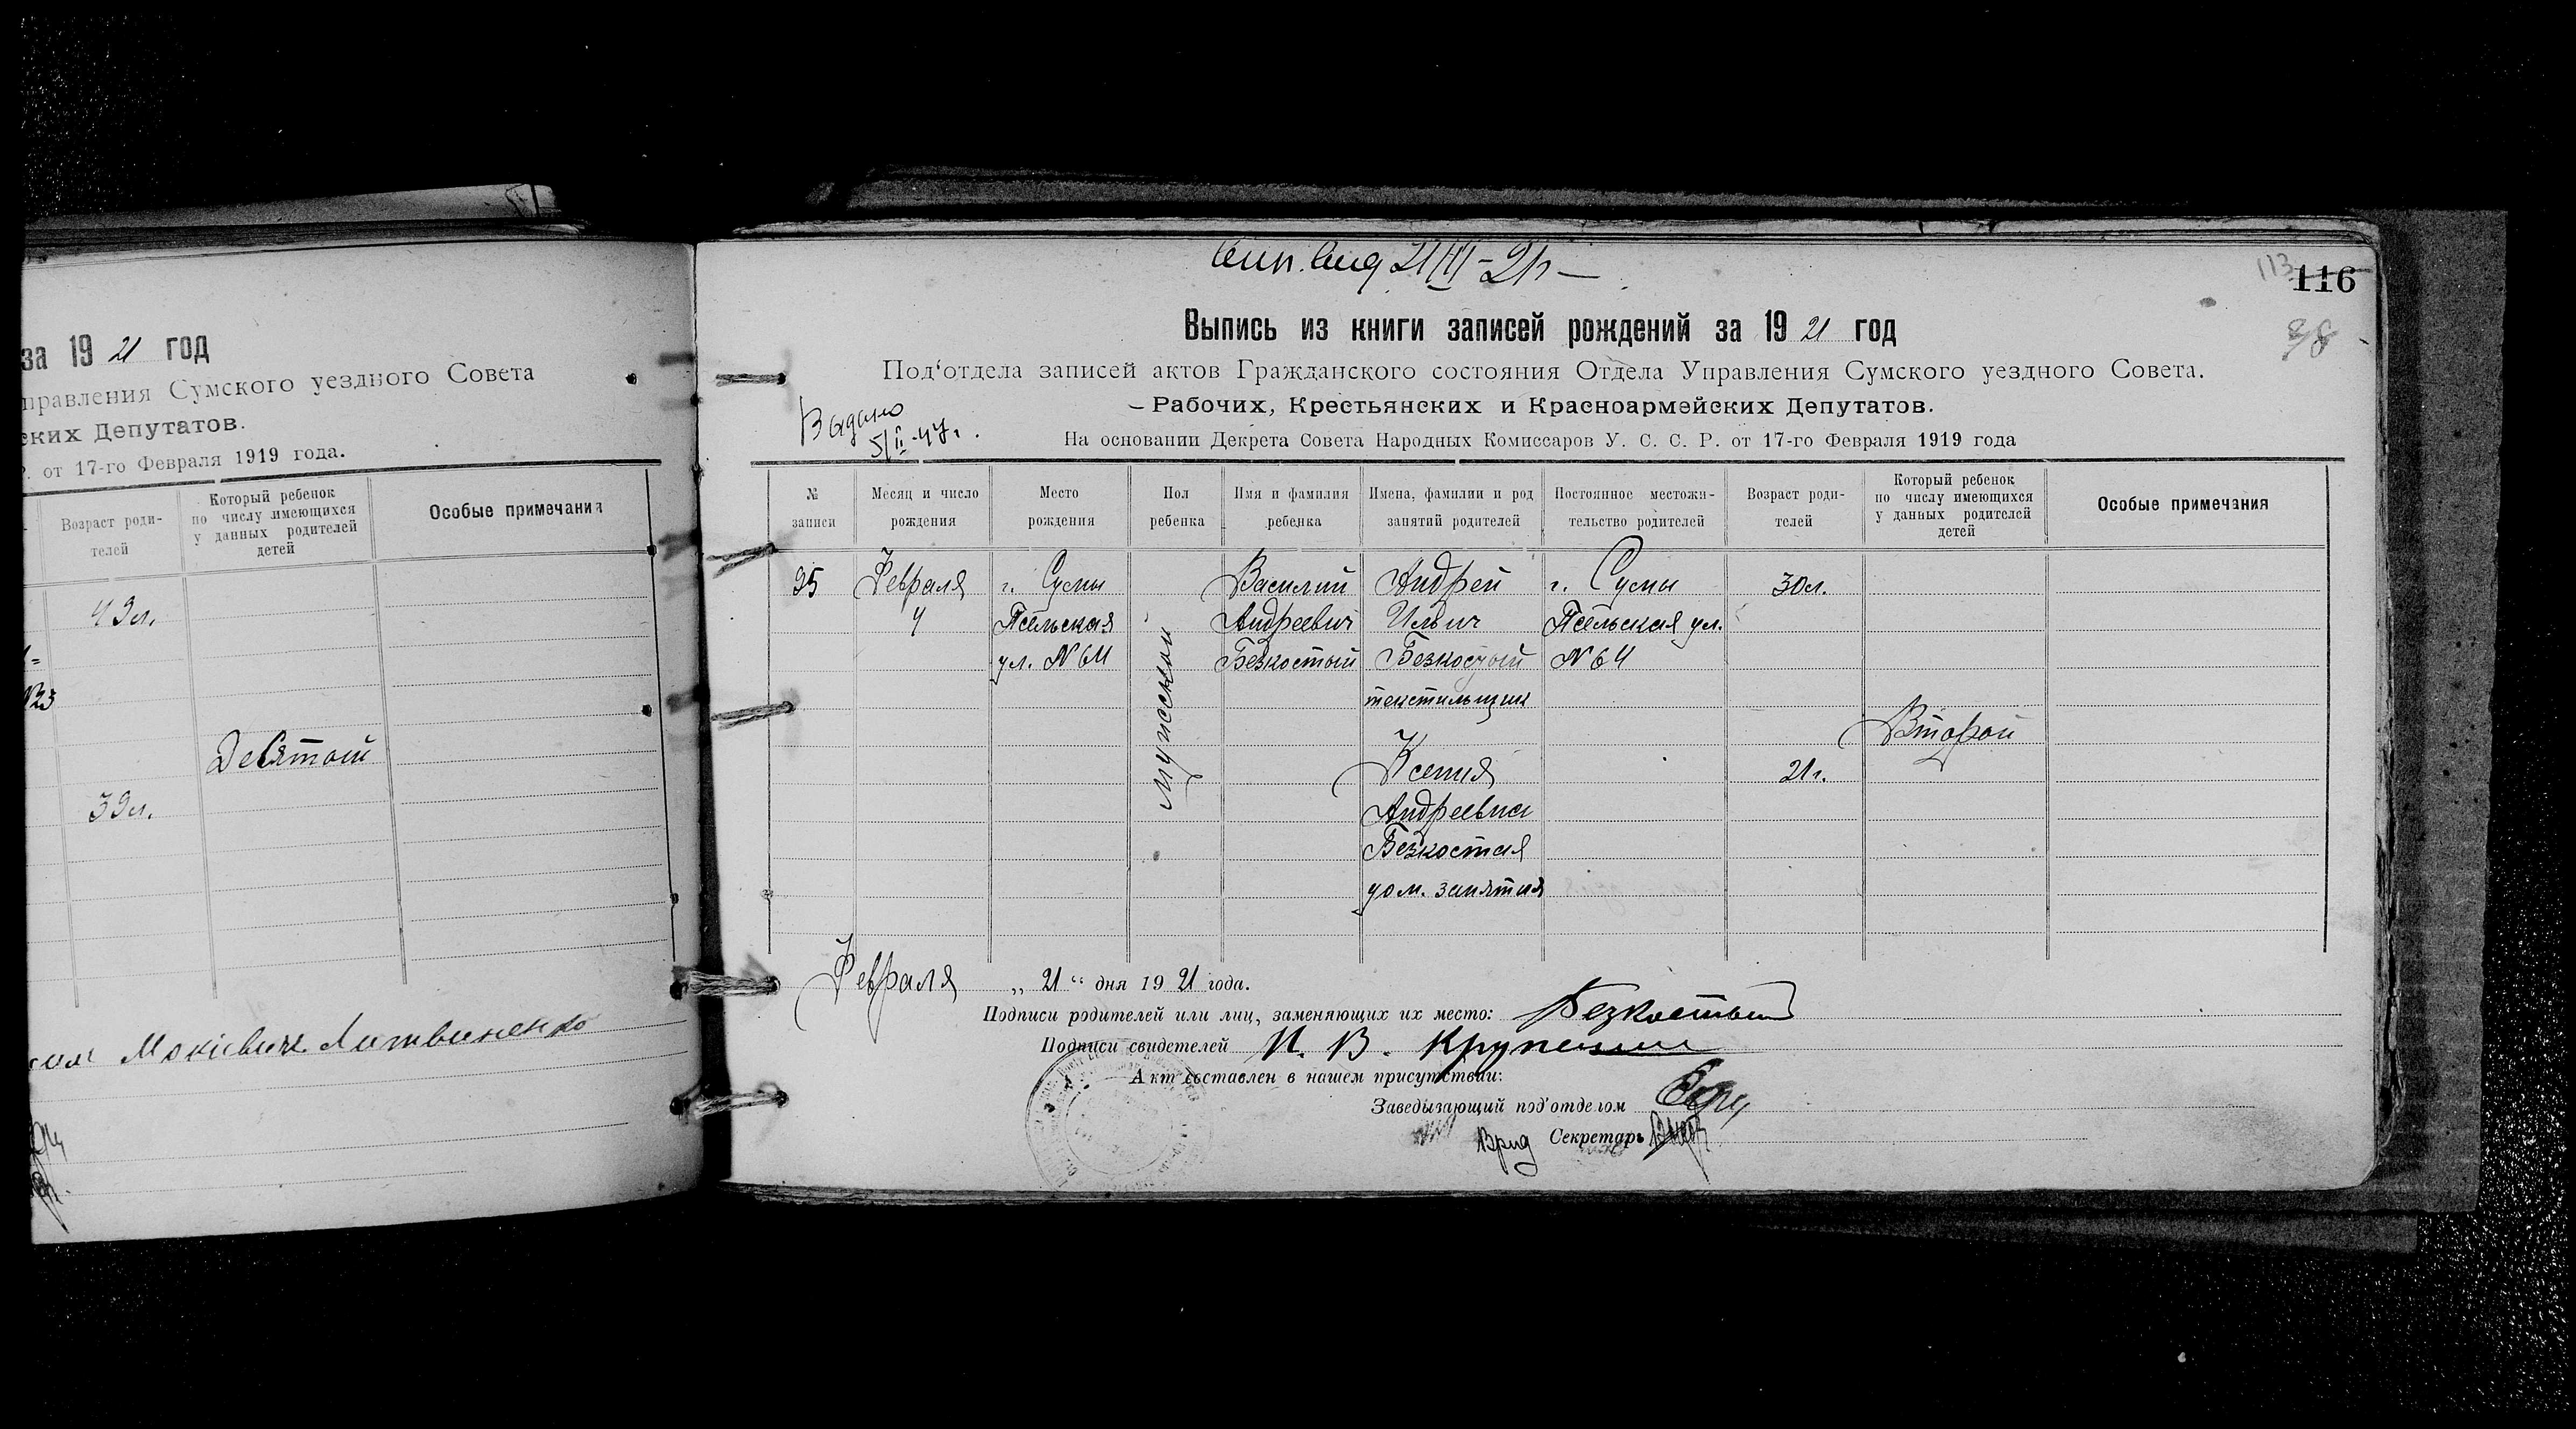 за 1921 год
правления Сумского уездного Совета
ских Депутатов.
Р. от 17-го Февраля 1919 года.
Возраст роди-
телей
Который ребенок
по числу имеющихся
у данных родителей
детей
Особые примечания
43л.
Десятый
39л.
Мокіевич Литвиненко
21/III-21г
113
116
Выпись из книги записей рождений за 1921 год
Под'отдела записей актов Гражданского состояния Отдела Управления Сумского уездного Совета.
Рабочих, Крестьянских и Красноармейских Депутатов.
Выдано
5/II-47г.
На основании Декрета Совета Народных Комиссаров У. С. С. Р. от 17-го Февраля 1919 года
№
записи
Месяц и число
рождения
Место
рождения
Пол
ребенка
Имя и фамилия
ребенка
Имена, фамилии и род
занятий родителей
Постоянное местожи-
тельство родителей
Возраст роди-
телей
Который ребенок
по числу имеющихся
у данных родителей
детей
Особые примечания
95
Февраля
4
г. Сумы
Псельская
ул. N 64
мужеской
Василий
Андреевич
Безкостый
Андрей
Ильич
Безкостый
текстильщик
Ксения
Андреевна
Безкостая
дом. занятия
г. Сумы
Псельская ул.
N 64
30л.
21г.
Второй
Февраля „21“ дня 1921 года.
Подписи родителей или лиц, заменяющих их место: Безкостый
Подписи свидетелей И. В.
Акт составлен в нашем присутствии:
Заведызающий под'отделом
Врид Секретарь